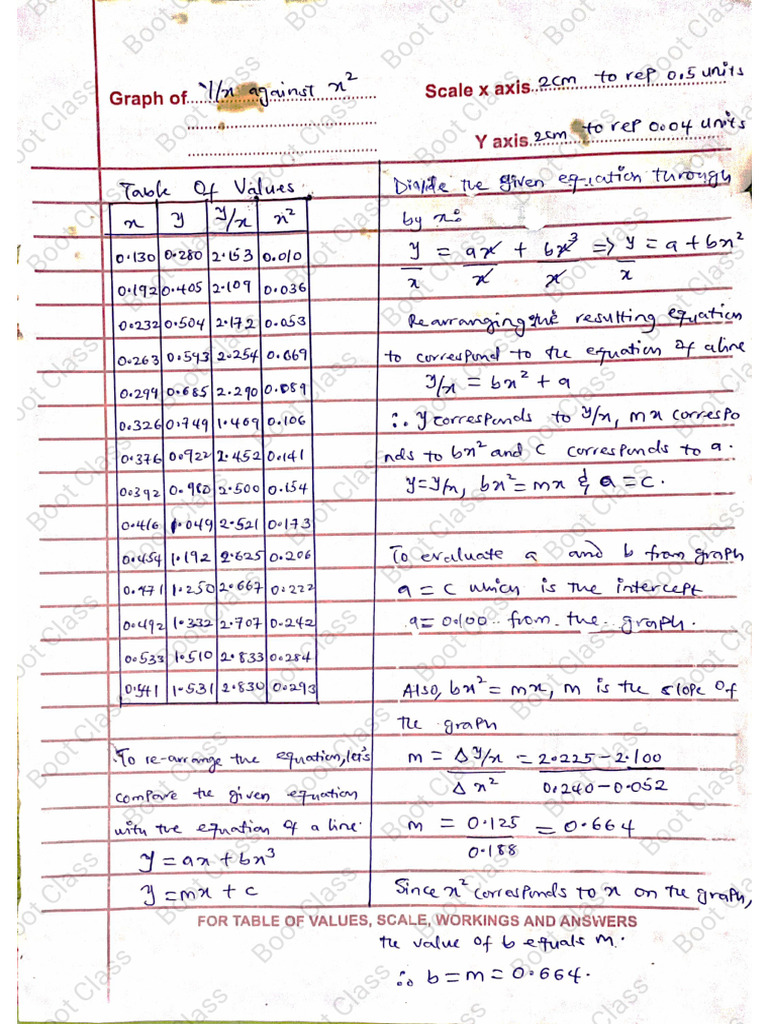 Graph of Y/x against x²
Scale x axis 2cm to rep 0.5 units
Y axis 2cm to rep 0.04 units
Table Of Values
x Y Y/x x²
0.130 0.280 2.153 0.010
0.192 0.405 2.109 0.036
0.232 0.504 2.172 0.053
0.263 0.543 2.254 0.069
0.299 0.685 2.290 0.089
0.326 0.749 1.469 0.106
0.376 0.922 2.452 0.141
0.392 0.980 2.500 0.154
0.416 1.049 2.521 0.173
0.454 1.192 2.625 0.206
0.471 1.250 2.667 0.222
0.492 1.332 2.707 0.242
0.533 1.510 2.833 0.284
0.541 1.531 2.830 0.293
To re-arrange the equation, let's
compare the given equation
with the equation of a line.
Y = ax + bx³
Y = mx + c
Divide the given equation through
by x:
Y/x = ax/x + bx³/x => Y/x = a + bx²
Rearranging the resulting equation
to correspond to the equation of a line
Y/x = bx² + a
∴ Y corresponds to Y/x, mx correspo
nds to bx² and C corresponds to a.
Y = Y/x, bx² = mx & a = c.
To evaluate a and b from graph
a = c which is the intercept
a = 0.100 from the graph.
Also, bx² = mx, m is the slope of
the graph
m = Δ Y/x / Δ x² = 2.225 - 2.100 / 0.240 - 0.052
m = 0.125 / 0.188 = 0.664
Since x² corresponds to x on the graph,
FOR TABLE OF VALUES, SCALE, WORKINGS AND ANSWERS
the value of b equals m.
∴ b = m = 0.664.
Boot Class